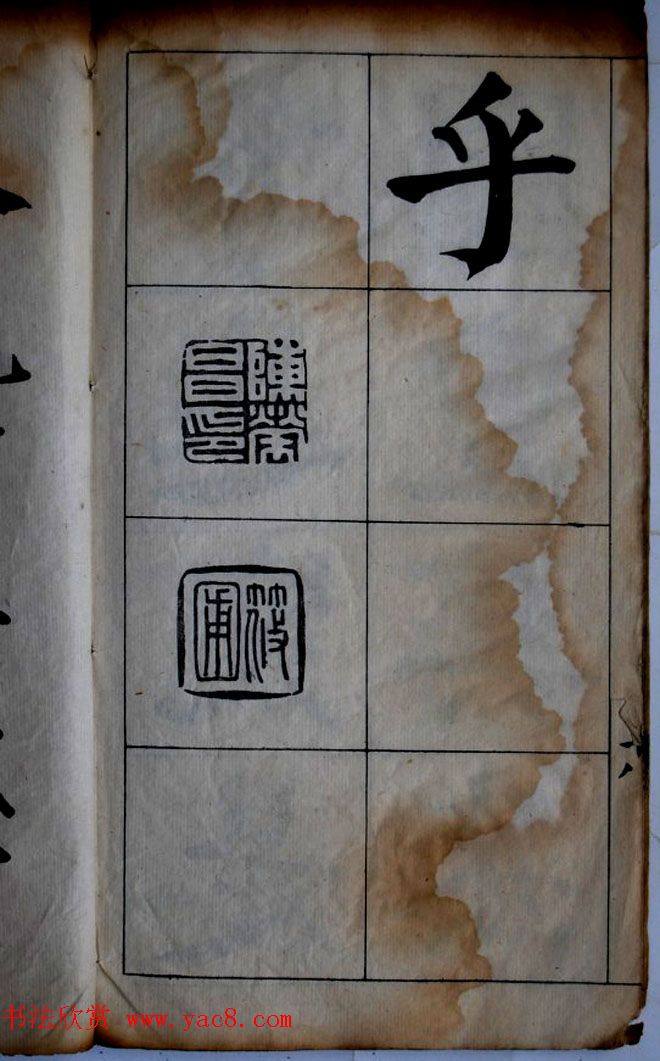 乎
陳榮昌印
筱圃
书法欣赏 www.yac8.com